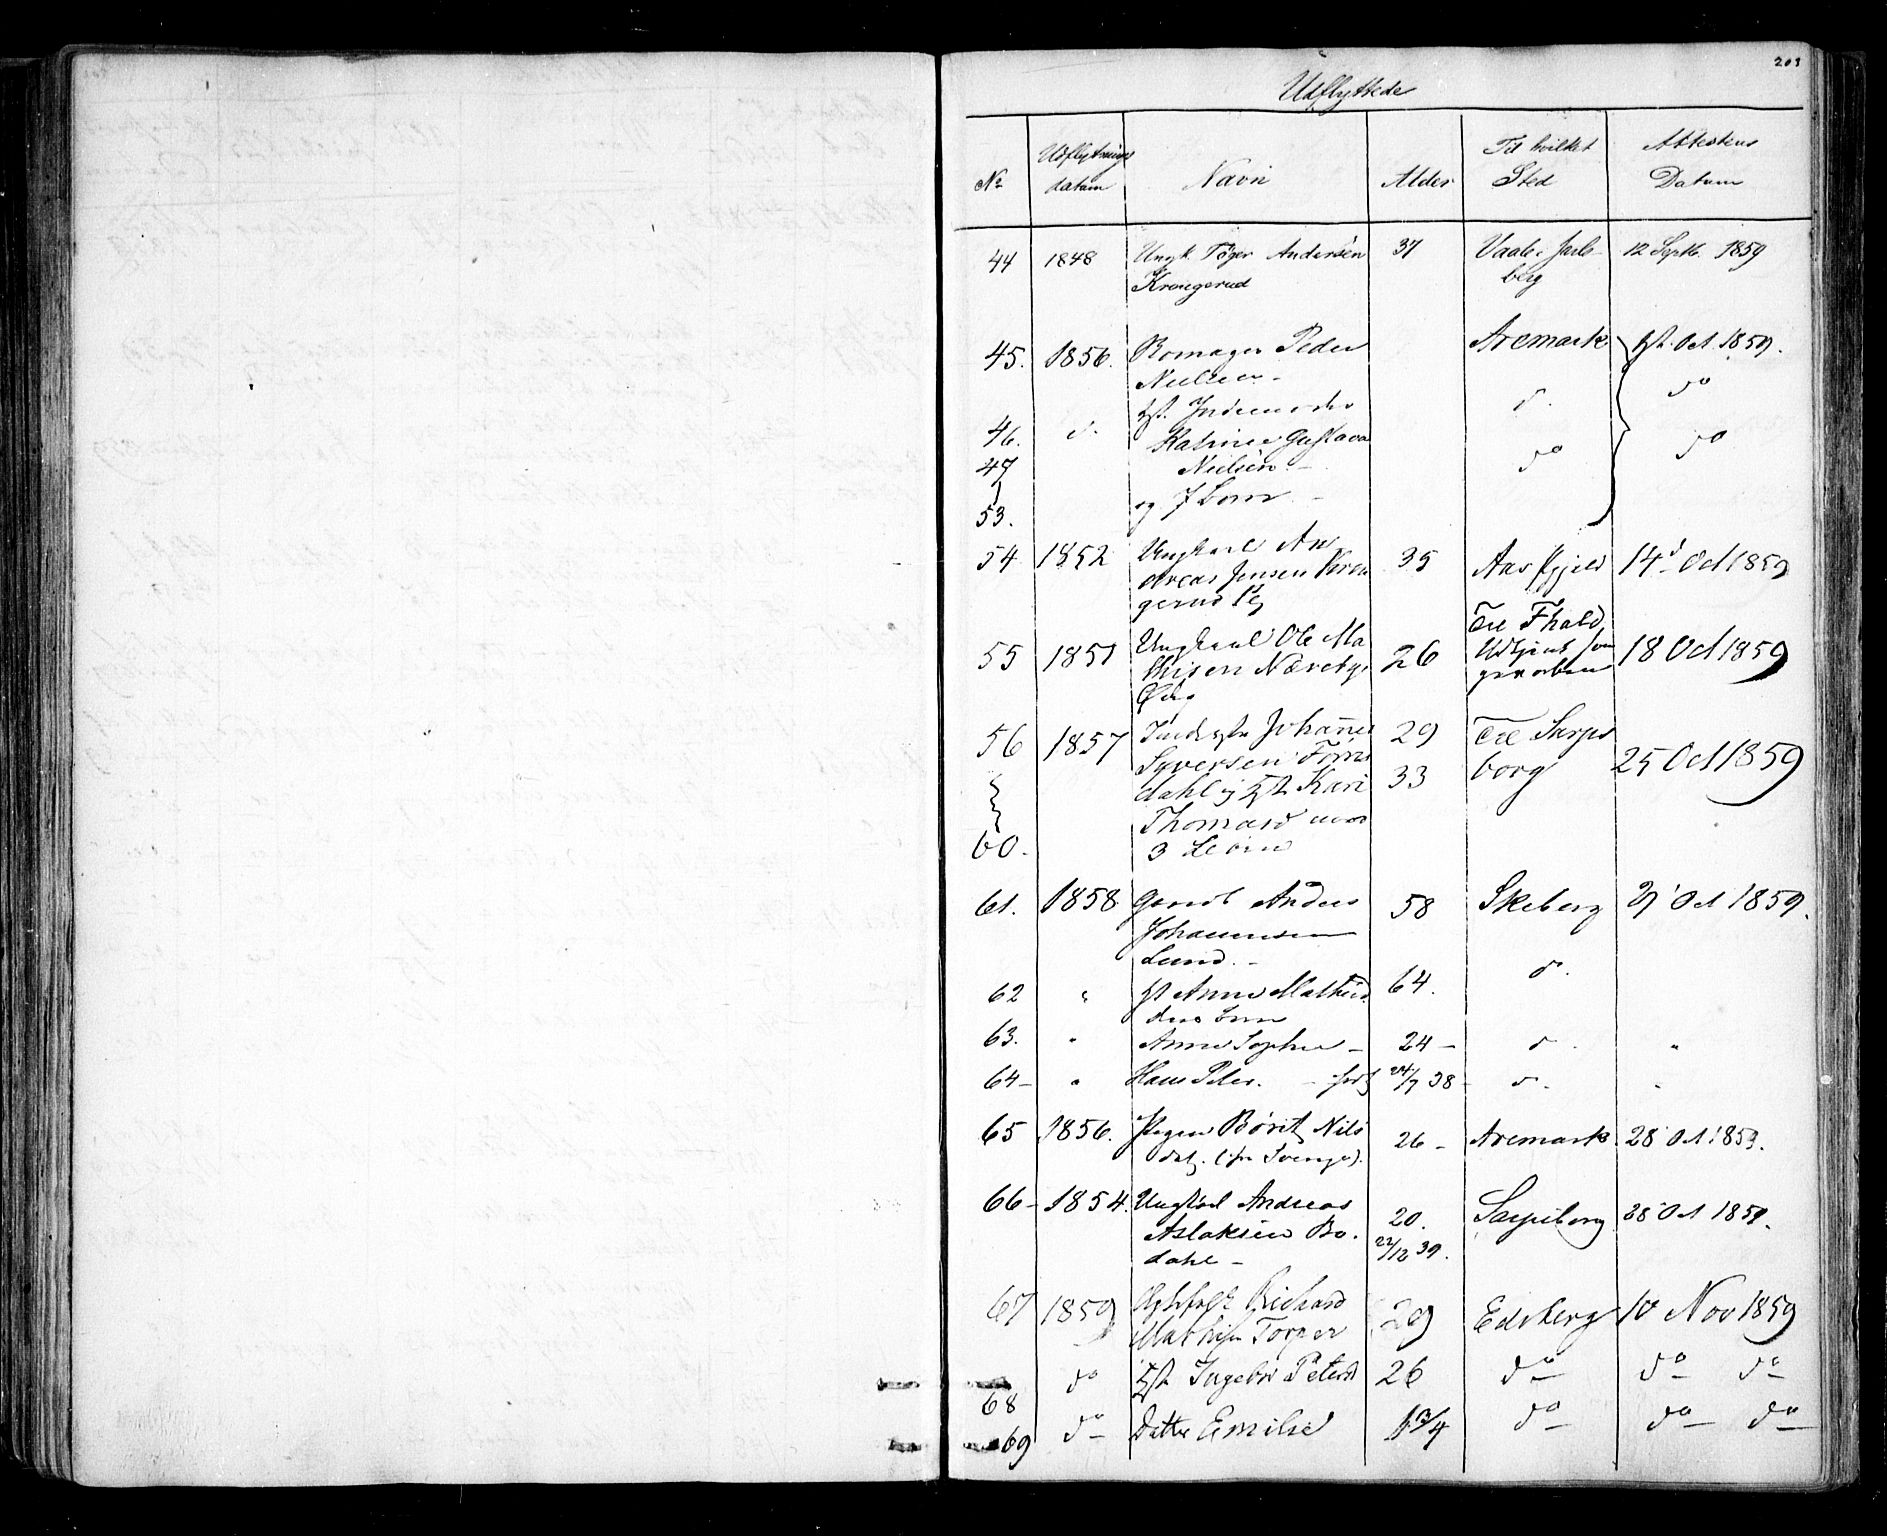 203
Udflyttede
No Udflytnings datum Navn Alder Til hvilket Sted Attestens Datum
44 1848 Ungk. Töger Andersen 37 Vaale i Jarls- 12 Septb. 1859
Krongerud berg
45. 1856. Peder Aremark Oct. 1859.
Nielsen - do
46. d. Katrine Gustava d.
47 Nielsen - do do
53. og 7 Børn -
54 1852 Ungkarl An 35 Aas 14d Oct 1859
dreas Jensen Kron
gerud
55 1857 Ungkarl Ole Ma 26 Til Fhald 18 Oct 1859
thisen
56 1857 Inderst Johannes 29 Til Sarps 25 Oct 1859
Syversen
dahl og Kari 33 borg
Thomasd med
60. 3 Børn
61. 1858 Anders 58 Skeberg 27' Oct 1859.
Johannesen
Lund. -
62 " Anne Mathis 64. d.
63. " Anne Sophie - 24 - d. "
64 - " Hans Peter. - født 24/7 38 - d. "
65 1856. Pigen Börit Nils 26 - Aremark 28 Oct 1859.
datr. (fra Sverige).
66 - 1854. Ungkarl Andreas 20. Sarpsborg 28 Oct 1859.
Aslaksen Bo. 22/12 39.
dahl -
67 1859 Richard 29 Edsberg 10 Nov 1859
Mathisen Torper
68 do Ingebor Petersd 26 do do do
69 do Datter Emilie 1 3/4 do do do